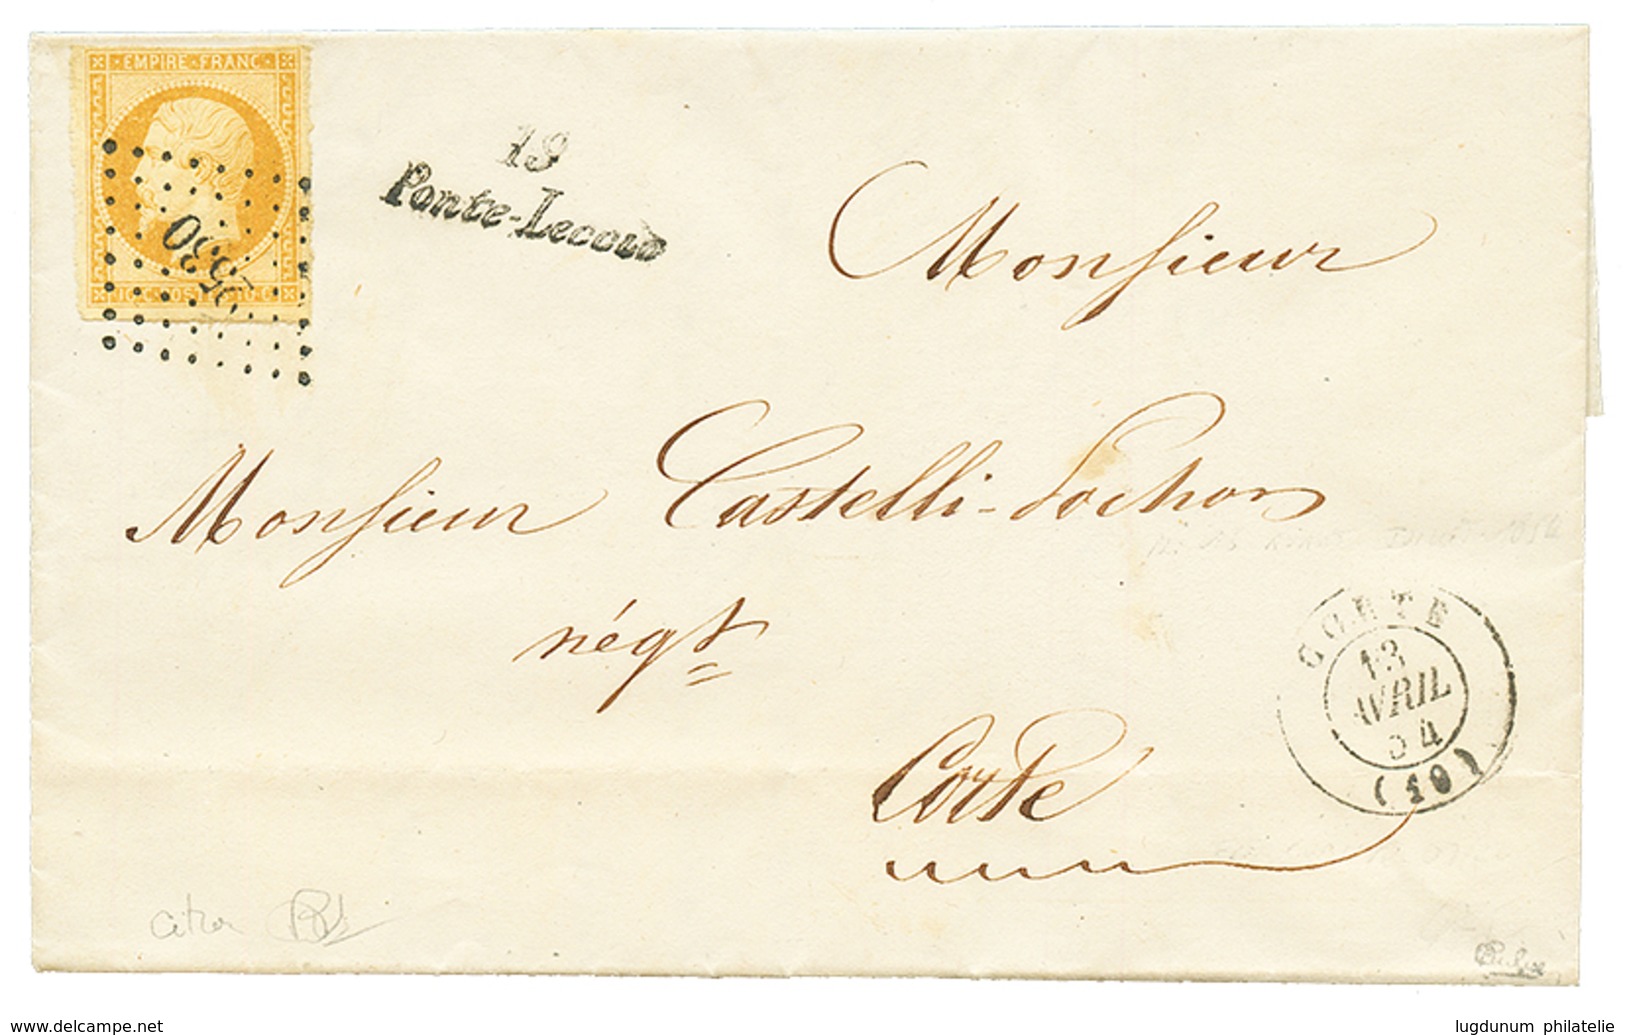 EMPIRE·FRANC·
10·C·POSTES·10·C·
2530
19
Ponte-Leccia
Monsieur
Monsieur Castelli-Pochon
négt
Corte
CORTE
13
AVRIL
54
(19)
citron
delcampe.net
lugdunum philatelie